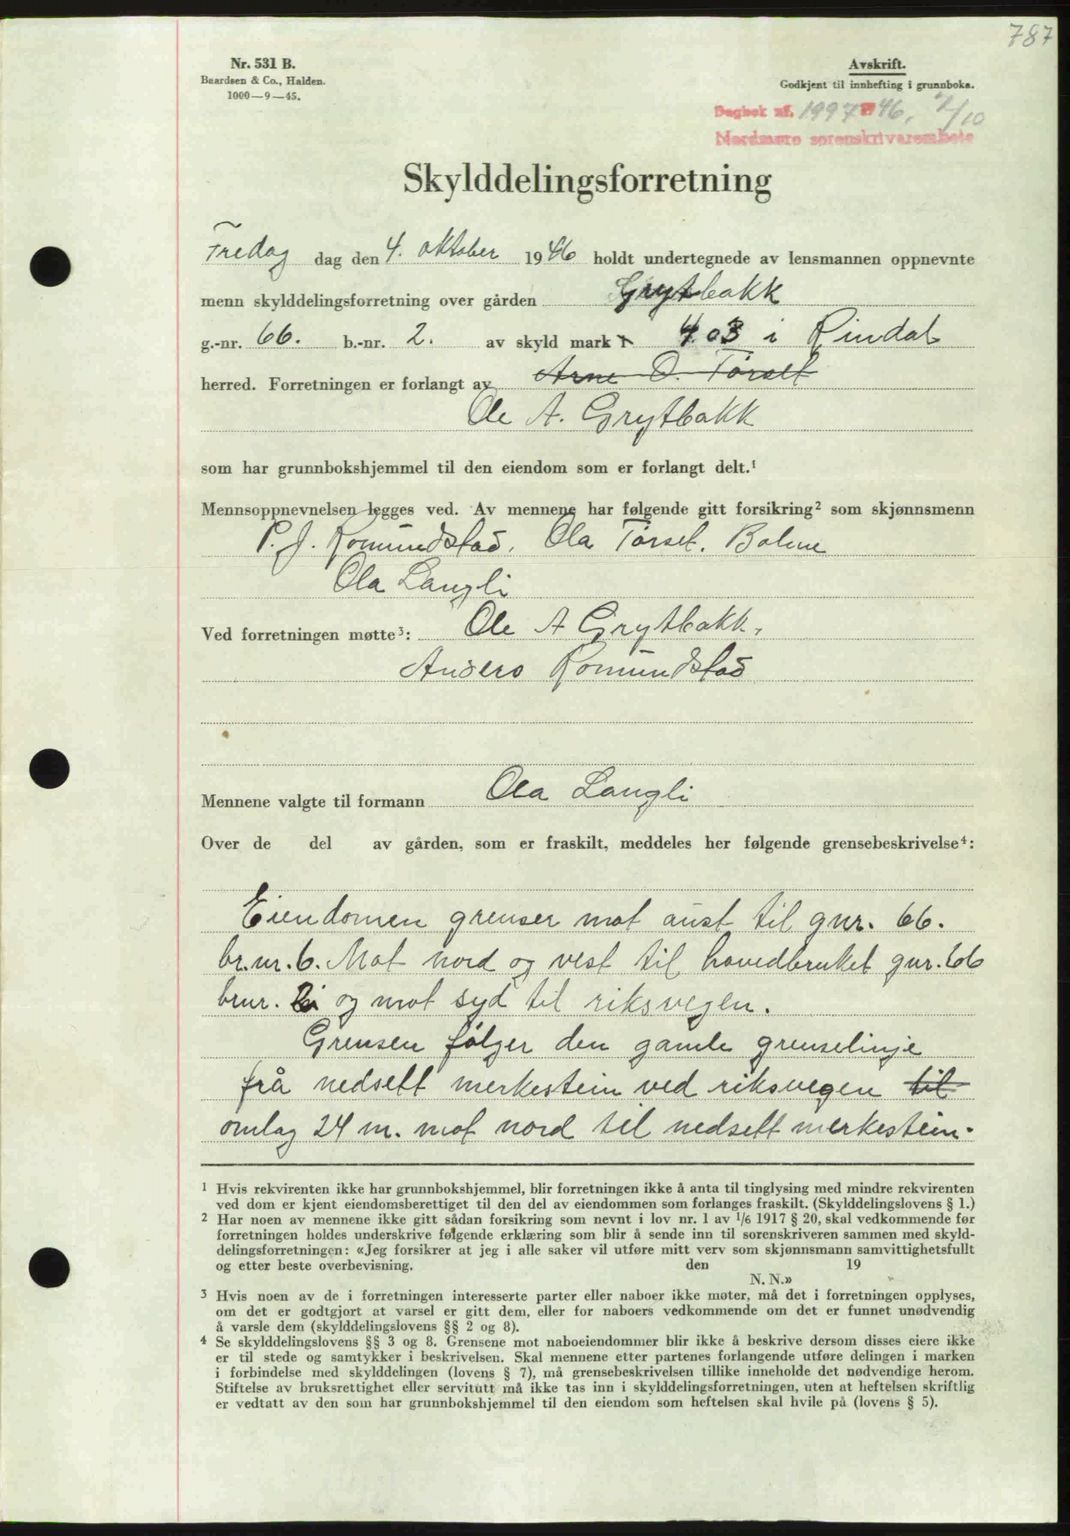 787
Nr. 531 B.
Baardsen & Co., Halden.
1000—9—45.
Avskrift.
Godkjent til innhefting i grunnboka.
Dagbok nr. 1997 46, 7/10
Nordmøre sorenskrivarembete
Skylddelingsforretning
Fredag dag den 4. oktober 1946 holdt undertegnede av lensmannen oppnevnte
menn skylddelingsforretning over gården Grytbakk
g.-nr. 66. b.-nr. 2. av skyld mark 4.03 i Rindal
herred. Forretningen er forlangt av Arne O. Tørset
Ole A. Grytbakk
som har grunnbokshjemmel til den eiendom som er forlangt delt.¹
Mennsoppnevnelsen legges ved. Av mennene har følgende gitt forsikring² som skjønnsmenn
P. J. Romundstad, Ola Tørset, Bolme
Ola Langli
Ved forretningen møtte³: Ole A Grytbakk,
Anders Romundstad
Mennene valgte til formann Ola Langli
Over de del av gården, som er fraskilt, meddeles her følgende grensebeskrivelse⁴:
Eiendomen grenser mot aust til gnr. 66.
br.nr. 6. Mot nord og vest til hovedbruket gnr. 66
brnr. 2 og mot syd til riksvegen.
Grensen følger den gamle grenselinje
frå nedsett merkestein ved riksvegen til
omlag 24 m. mot nord til nedsett merkestein.
¹ Hvis rekvirenten ikke har grunnbokshjemmel, blir forretningen ikke å anta til tinglysing med mindre rekvirenten
ved dom er kjent eiendomsberettiget til den del av eiendommen som forlanges fraskilt. (Skylddelingslovens § 1.)
² Har noen av mennene ikke gitt sådan forsikring som nevnt i lov nr. 1 av 1/6 1917 § 20, skal vedkommende før
forretningen holdes underskrive følgende erklæring som blir å sende inn til sorenskriveren sammen med skyld-
delingsforretningen: «Jeg forsikrer at jeg i alle saker vil utføre mitt verv som skjønnsmann samvittighetsfullt
og etter beste overbevisning. den 19
N. N.»
³ Hvis noen av de i forretningen interesserte parter eller naboer ikke møter, må det i forretningen opplyses,
om det er godtgjort at varsel er gitt dem, eller for naboers vedkommende om det er funnet unødvendig
å varsle dem (skylddelingslovens §§ 2 og 8).
⁴ Se skylddelingslovens §§ 3 og 8. Grensene mot naboeiendommer blir ikke å beskrive dersom disses eiere ikke
er til stede og samtykker i beskrivelsen. Skal mennene etter partenes forlangende utføre delingen i marken
i forbindelse med skylddelingen (lovens § 7), må grensebeskrivelsen tillike inneholde det nødvendige herom.
Stiftelse av bruksrettighet eller servitutt må ikke tas inn i skylddelingsforretningen, uten at heftelsen skriftlig
er vedtatt av den som har grunnbokshjemmel til den eiendom som heftelsen skal hvile på (lovens § 5).